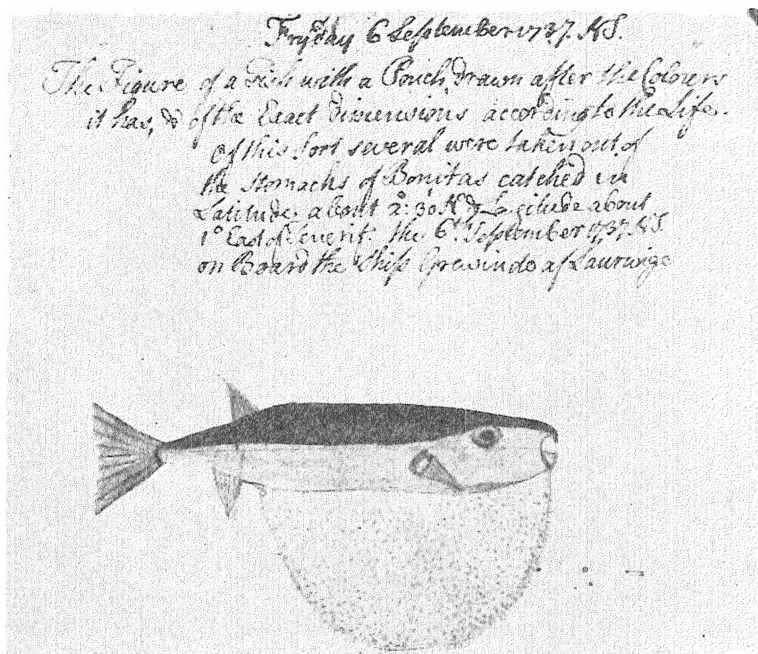 Fryday 6 September 1737. NS.
The Figure of a Fish with a Pouch, drawn after the Colours
it has, & of the Exact Dimensions according to the Life.
Of this sort several were taken out of
the Stomachs of Bonitas catched in
Latitude about 2°: 30 N & Longitude about
1° East of Tenerif: the 6th. September 1737. NS
on Board the Ship Grewinde af Laurwige